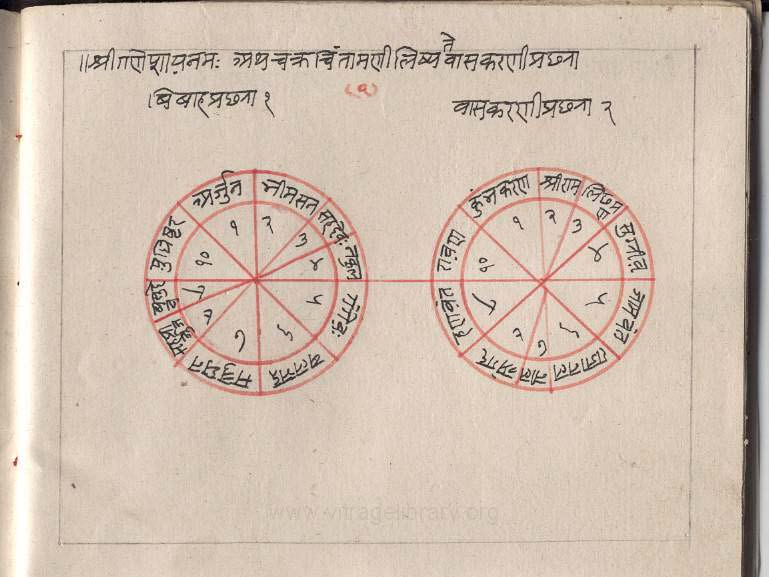 ॥श्रीगणेशायनमः अथ चक्रचिंतामणी लिष्यते वासकरणीप्रछना
(१)
विवाहप्रछना १
वासकरणीप्रछना २
अर्जुन
भीमसन
सहदेवः
नकुल
गंगेवः
प्रदुमन
युधिष्टर
१
२
३
४
५
६
७
८
९
१०
कुंभकरण
श्रीराम
लिछमण
सुग्रीव
जामवंत
नल
नील
अंगद
हणवंत
रावण
१
२
३
४
५
६
७
८
९
१०
www.vitragelibrary.org